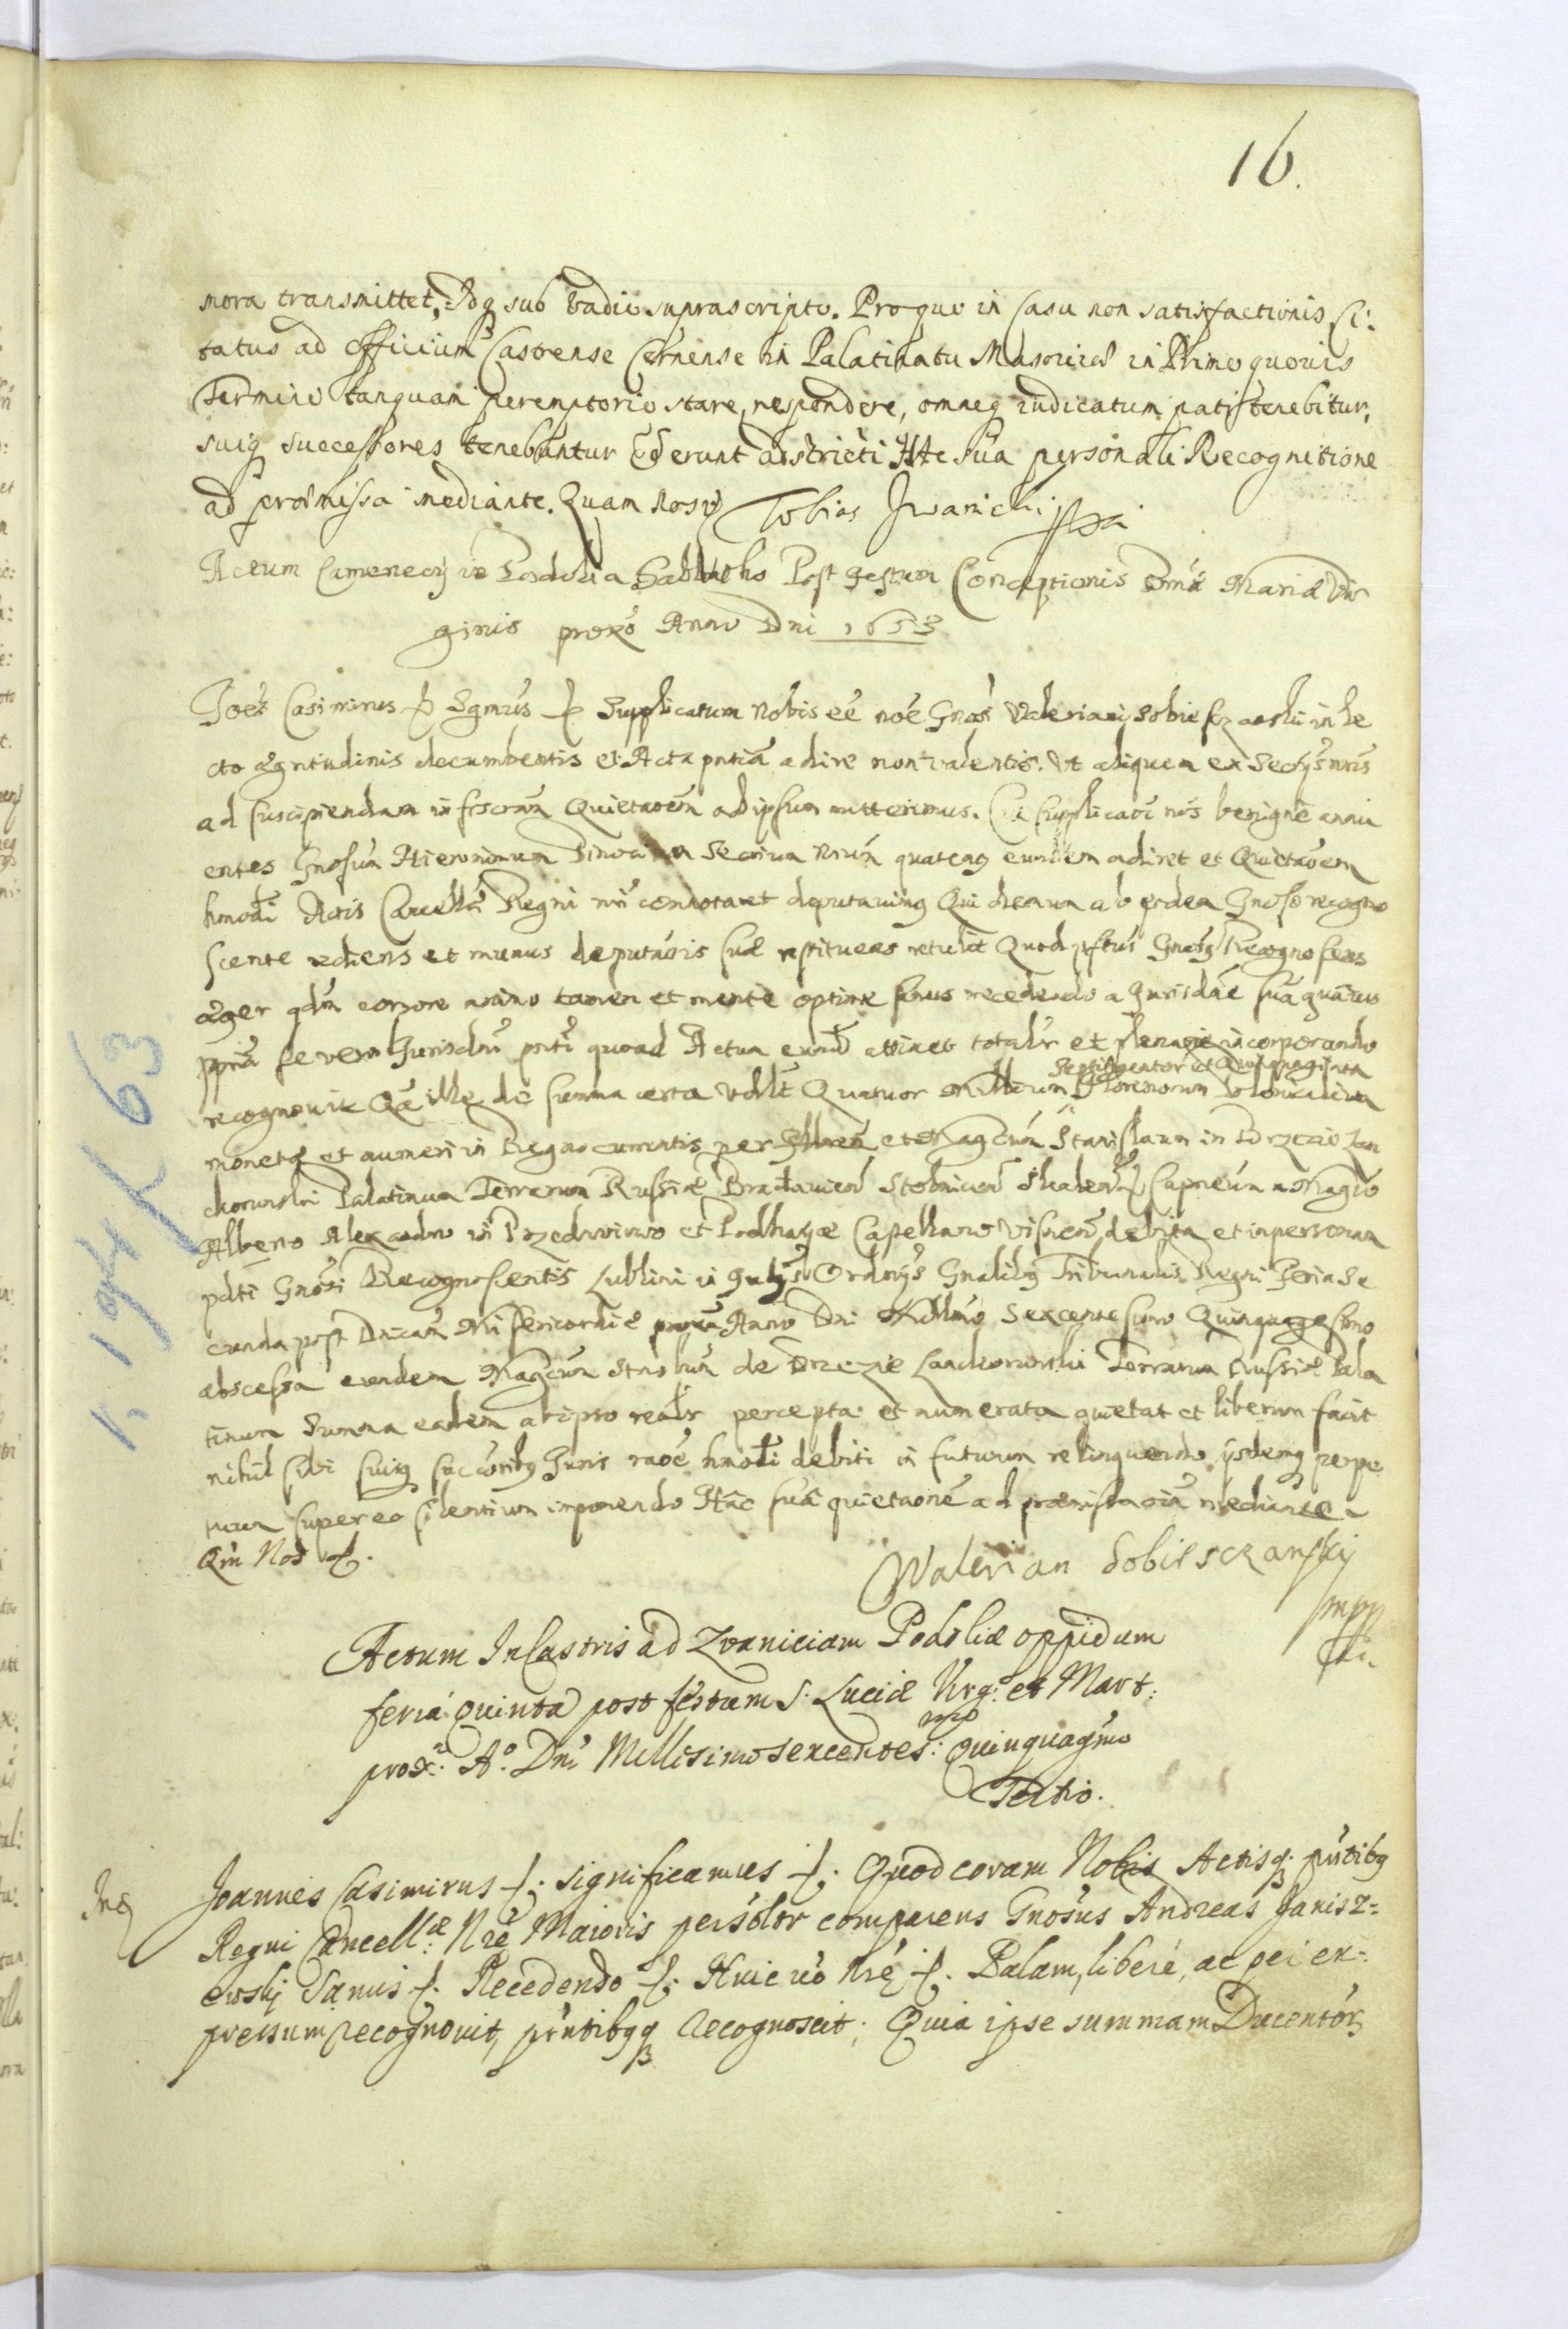 16.
mora transmittet, Idq sub vadio suprascripto. Pro quo in Casu non satisfactionis Ci:
tatus ad Officium Castrense Cernense in Palatinatu Masoviæ in Primo quovis
Termino tanquam peremptorio stare, respondere, omneq iudicatum pati tenebitur,
suiq successores tenebuntur et erunt adstricti Hac sua personali Recognitione
ad præmissa mediante. Quam Nos
Tobias Iwanicki mpa
Actum Camenecij in Podolia Sabbatho Post Festum Conceptionis Mariæ Vir
ginis proxo Anno Dni 1653
Joês Casimirus Sgmus Supplicatum Nobis eê noê Gnosi Valeriani Sobiesczanski in le
cto ægritudinis decumbentis et Acta pntia adire non valentis. Vt aliquem ex Secrijs nris
ad suscipiendam infrscram Quietaoêm ad ipsum mitteremus. Cui supplicaoi nos benigne annu
entes Gnosum Hieronimum Secrium Nrum quatenq eundem adiret et Quietaoem
hmodi Actis Cancellæ Regni nri connotaret deputavimq Qui demum ab eodem Gnoso recogno
scente rediens et munus deputaois suæ restituens retulit Quod pftus Gnosq Recognoscens
æger qdm corpore animo tamen et mente optime sanus recedendo a Jurisdne sua quavis
ppria se vero Jurisdni pnti quoad Actum eund attinet totalr et plenarie incorporando
recognovit Qa ille de summa certa vdlt Quatuor Millium Septingentor et Quinquaginta Florenorum Polonicalium
monetæ et numeri in Regno currentis per Illrem et Magcum Stanislaum in Brzezie Lan
ckorunski Palatinum Terrarum Russiæ Bracłavien Stobnicen Skalen Capneum a Magco
Alexandro in et Podhayce Castellano debita et in personam
pdti Gnosi Recognoscentis Lublini in Ordrijs Gnalibq Tribunalis Regni Feria Se
cunda post Dnicam Misericordiæ proxa Anno Dni Millmo Sexcentesimo Quinquagesimo
obscessa eundem Magcum Stnslum de Brzezie Lanckorunski Terrarum Russiæ Pala
tinum Summa eadem ab ipso realr percepta et numerata quietat et liberum facit
nihil sibi suisq succoribq Juris raoe hmodi debiti in futurum relinquendo ijsdemq perpe
tuum super eo silentium imponendo Hac sua quietaone ad præmissa oia mediante
Qm Nos
Walerian Sobiesczanskij
mpp
Actum In Castris ad Zvaniciam Podoliæ oppidum
feria quinta post festum S. Luciæ Virg: et Mart:
prox: Ao. Dni Millisimo sexcentes:mo quinquagmo
Tertio.
Joannes Casimirus significamus Quod coram Nobis Actisq. pntibq
Regni Cancellæ Nrê Maioris persolr comparens Gnosus Andreas Janisz=
ewskij Sanus Recedendo Huic vo Nrê Palam, liberé, ac per ex=
pressum recognovit, pntibqq recognoscit; Quia ipse summam Ducentor
K 194 K 63